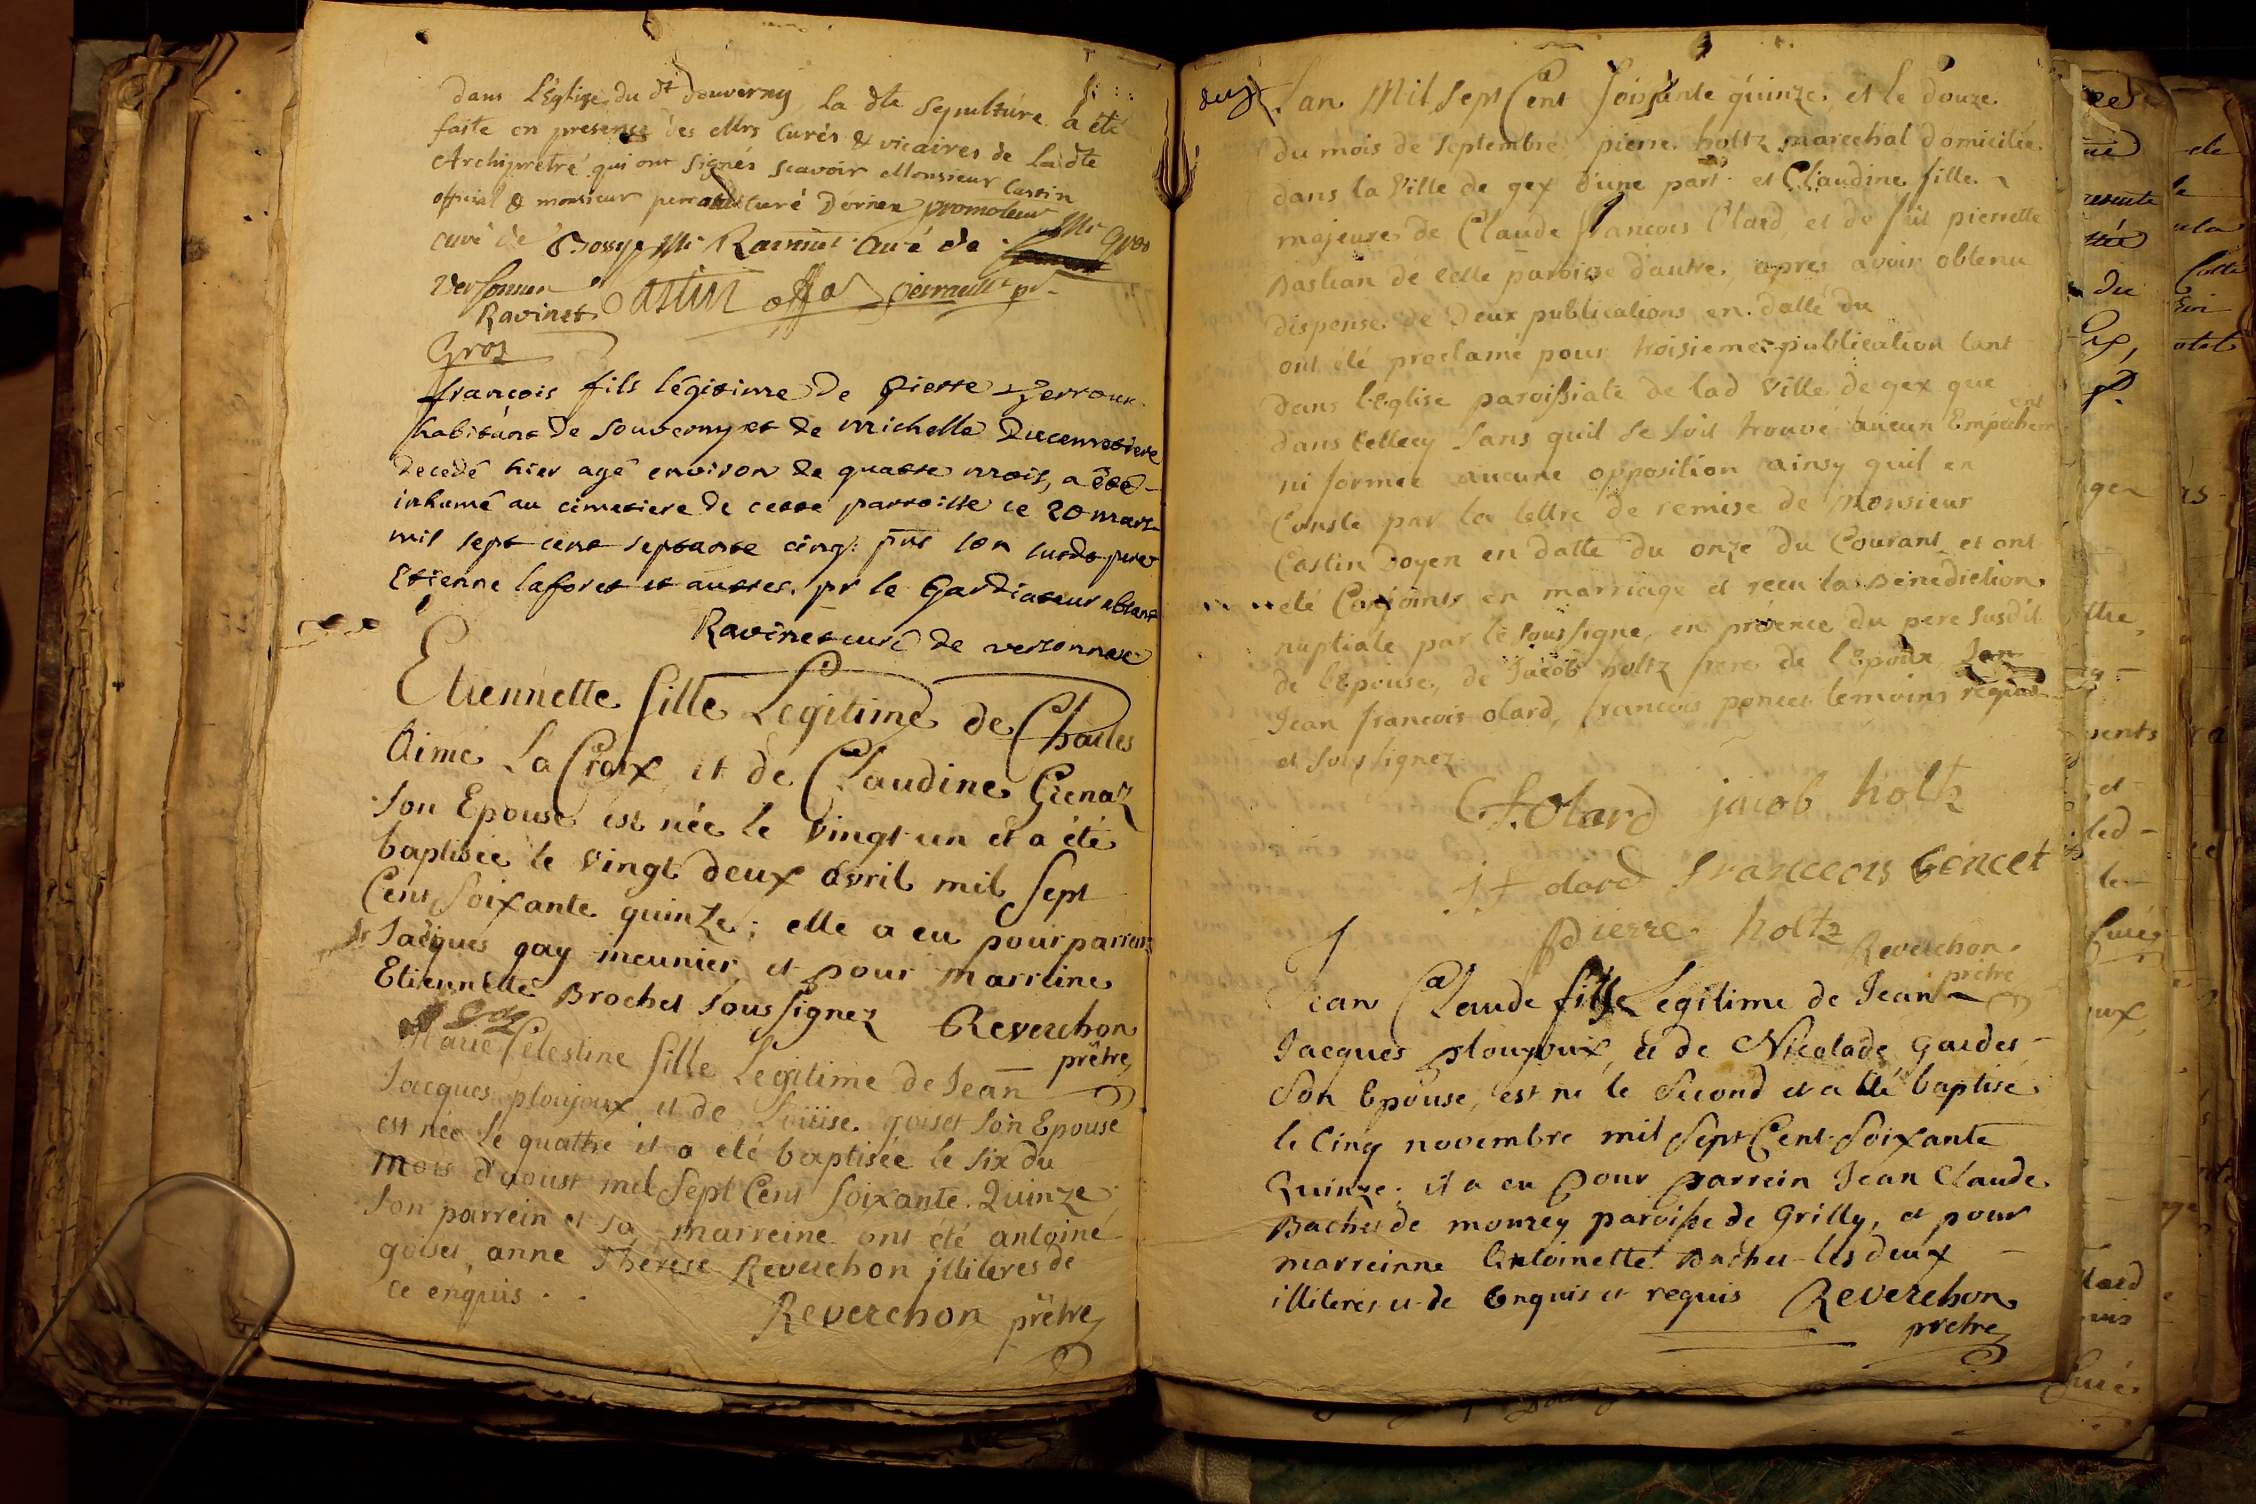 dans L'Eglise du dt douverny la dte sepulture a été
faite en presence des Mrs Curés & vicaires de la dte
Archiprêtré qui ont signés scavoir Monsieur Castin
official & monsieur perrault curé Dornex promoteur
curé de Bossy Mr Ravinet curé de Mr Gros
Versonnex
Ravinet Castin offal perrault pr
Gros
françois fils légitime de Pierre
habitant de Souverny et de Michelle
decedé hier agé environ de quatre mois, a été
inhumé au cimetiere de cette parroisse ce 20 mars
mil sept cent septante cinq: pnt son susdt pere
Etienne laforet et autres. pr le Gardiateur absent
Ravinet curé de versonnex
Etiennette fille Legitime de Charles
Aimé La Croix et de Claudine Grenaz
son Epouse est née le vingt-un et a été
baptisée le vingt deux avril mil sept
Cent soixante quinze; elle a eu pour parrein
Jacques gay meunier et pour marreine
Etiennette Brochet sous signez Reverchon
J Gay prêtre
Marie Celestine fille Legitime de Jean
Jacques ploujoux et de Loüise goiset son Epouse
est née le quattre et a été baptisée le six du
mois d'aoust mil sept Cent soixante Quinze
son parrein et sa marreine ont été antoine
goiset, anne Therese Reverchon jlliteres de
ce enquis . .
Reverchon prêtre
Lan Mil sept Cent soixante quinze et le douze
du mois de septembre pierre holtz marechal domicilié
dans la ville de gex d'une part et Claudine fille
majeure de Claude françois Olard et de füe pierrette
Bastian de celle paroisse d'autre, apres avoir obtenu
dispense de deux publications en datte du
ont été proclamé pour troisieme publication tant
dans l'Eglise paroissiale de lad ville de gex que
dans Cellecy sans quil se soit trouvé aucun Empechement
ni formée aucune opposition ainsy quil en
Conste par la lettre de remise de Monsieur
Castin Doyen en datte du onze du Courant et ont
eté Conjoints en marriage et recu la Benediction
nuptiale par le soussigné, en présence du pere susdit
de l'Epouse, de Jacob holtz frere de l'Epoux,
Jean francois olard, francois poncet temoins requis
et sous signez
C f. Olard jacob holtz
J f olard francceois bencet
pierre holtz Reverchon
prêtre
Jean Claude fils Legitime de Jean
Jacques ploujoux, et de Nicolade gardet
son Epouse, est né le second et a été baptisé
le Cinq novembre mil sept Cent soixante
Quinze; il a eu pour parrein Jean Claude
Bachet de mourey paroisse de Grilly, et pour
marreinne antoinette Bachet les deux
illiteres et de Enquis et requis Reverchon
prêtre